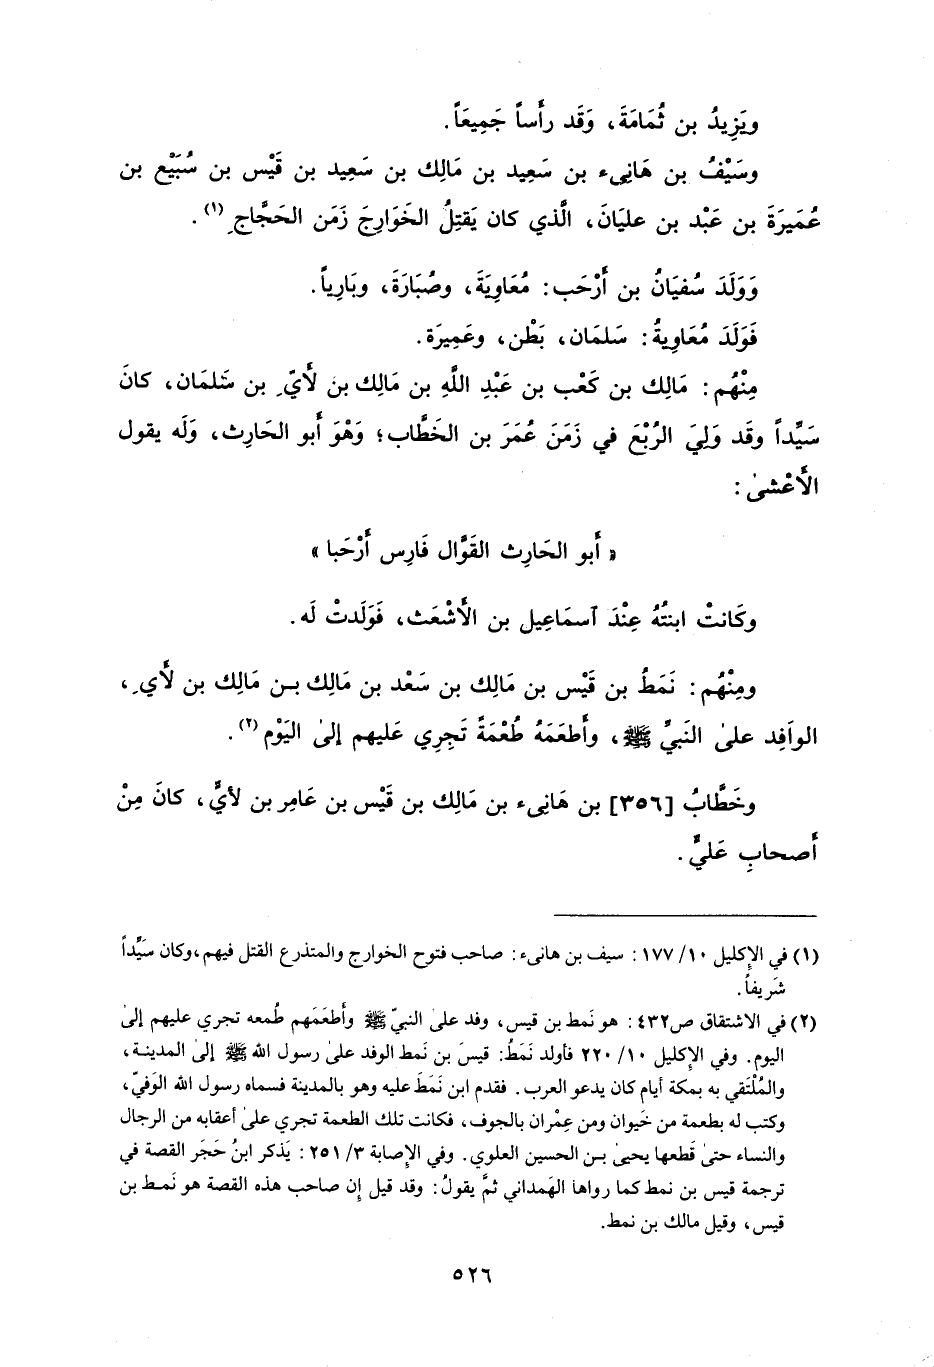 ويَزِيدُ بن ثُمَامَةَ، وَقَد رأَساً جَمِيعَاً.
وسَيْفُ بن هَانِىء بن سَعِيد بن مَالِك بن سَعِيد بن قَيْس بن سُبَيْع بن
عُمَيرَةَ بن عَبْد بن عليَانَ، الَّذي كان يَقتِلُ الخَوارِجَ زَمَن الحَجَّاجِ (١).
وَوَلَدَ سُفيَانُ بن أَرْحَب: مُعَاوِيَةَ، وصُبَارَةَ، وبَارِياً.
فَوَلَدَ مُعَاوِيةُ: سَلمَان، بَطْن، وعَمِيرَة.
مِنْهُم: مَالِك بن كَعْب بن عَبْدِ اللَّهِ بن مَالِك بن لأَيِّ بن سَلمَان، كانَ
سَيِّداً وقَد وَلِيَ الرُبْعَ في زَمَنَ عُمَرَ بن الخَطَّاب؛ وَهْوَ أَبو الحَارِث، وَلَه يقول
الأَعْشىٰ:
« أَبو الحَارِث القَوَّال فَارِس أَرْحَبا »
وكَانتْ ابنتُهُ عِنْدَ آسمَاعِيل بن الأَشْعَث، فَوَلَدتْ لَه.
ومِنْهُم: نَمَطُ بن قَيْس بن مَالِك بن سَعْد بن مَالِك بـن مَالِك بن لأَيِ،
الواَفِد علىٰ النَبيِّ ﷺ، وأَطعَمَهُ طُعْمَةً تَجرِي عَليهم إلىٰ اليَوْم (٢).
وخَطَّابُ [٣٥٦] بن هَانِىء بن مَالِك بن قَيْس بن عَامِر بن لأيُّ، كانَ مِنْ
أَصحابِ عَليٍّ.
(١) في الإِكليل ١٠/ ١٧٧: سيف بن هانىء: صاحب فتوح الخوارج والمتذرع القتل فيهم، وكان سَيِّداً
شَريفاً.
(٢) في الاشتقاق ص٤٣٢: هو نَمط بن قيس، وفد علىٰ النبيّ ﷺ وأَطعَمَهم طُمعه تجري عليهم إلىٰ
اليوم. وفي الإِكليل ١٠/ ٢٢٠ فأولد نَمَطُ: قيسَ بن نَمط الوفد علىٰ رسول الله ﷺ إلىٰ المدينـة،
والمُلْتقي به بمكة أيام كان يدعو العرب. فقدم ابن نَمَطَ عليه وهو بالمدينة فسماه رسول الله الوَفيّ،
وكتب له بطعمة من خَيوان ومن عِمْران بالجوف، فكانت تلك الطعمة تجري علىٰ أعقابه من الرجال
والنساء حتىٰ قَطعها يحيىٰ بـن الحسين العلوي. وفي الإِصابة ٣/ ٢٥١: يَذكر ابنُ حَجَر القصة في
ترجمة قيس بن نمط كما رواها الهَمداني ثمَّ يقولُ: وقد قيل إِن صاحب هذه القصة هو نَمـط بن
قيس، وقيل مالك بن نمط.
٥٢٦